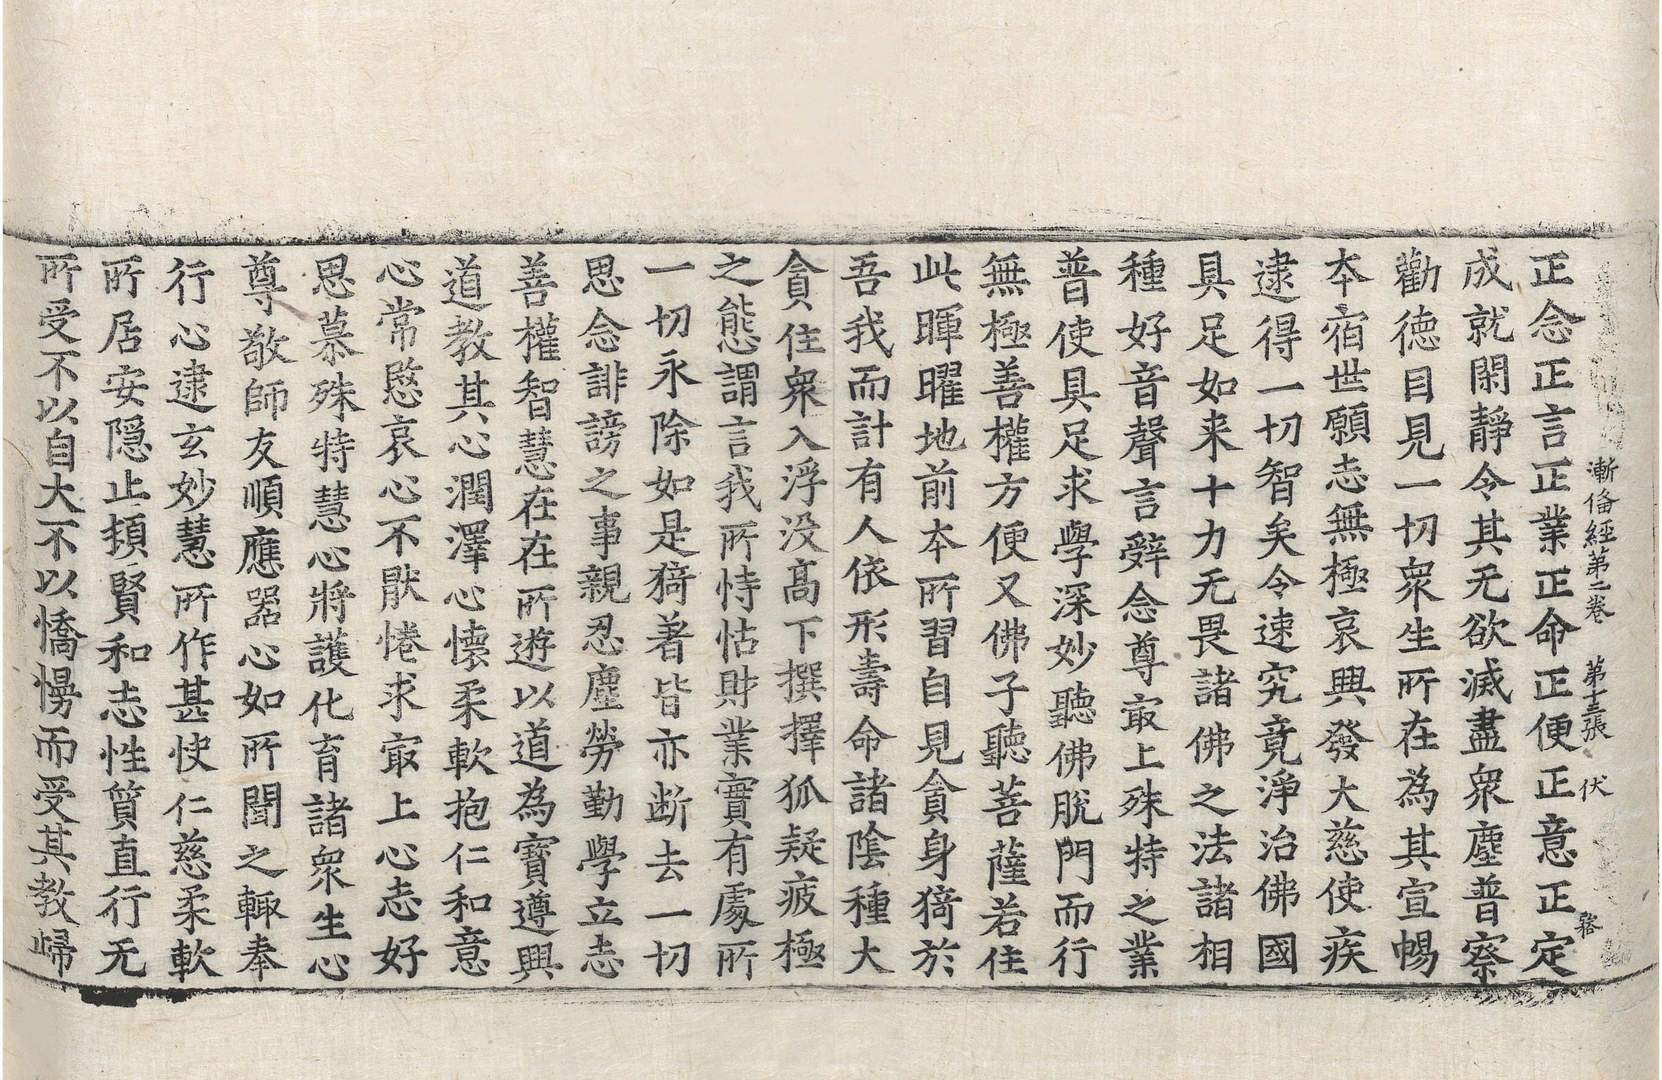 漸俻經第二卷　第十三張　伏
正念正言正業正命正便正意正定
成就閑靜令其无欲滅盡衆塵普察
勸徳目見一切衆生所在為其宣暢
本宿世願志無極哀興發大慈使疾
逮得一切智矣令速究竟淨治佛國
具足如来十力无畏諸佛之法諸相
種好音聲言辭念尊㝡上殊特之業
普使具足求學深妙聽佛脫門而行
無極善權方便又佛子聽菩薩若住
此暉曜地前本所習自見貪身猗於
吾我而計有人依形壽命諸陰種大
貪住衆入浮没高下撰擇狐疑疲極
之態謂言我所恃怙財業寶有處所
一切永除如是猗著皆亦断去一切
思念誹謗之事親忍塵勞勤學立志
善權智慧在在所遊以道為寶遵興
道教其心潤澤心懐柔軟抱仁和意
心常愍哀心不猒惓求㝡上心志好
思慕殊特慧心將護化育諸衆生心
尊敬師友順應器心如所聞之輙奉
行心逮玄妙慧所作甚快仁慈柔軟
所居安隱止頓賢和志性質直行无
所受不以自大不以憍慢而受其教歸